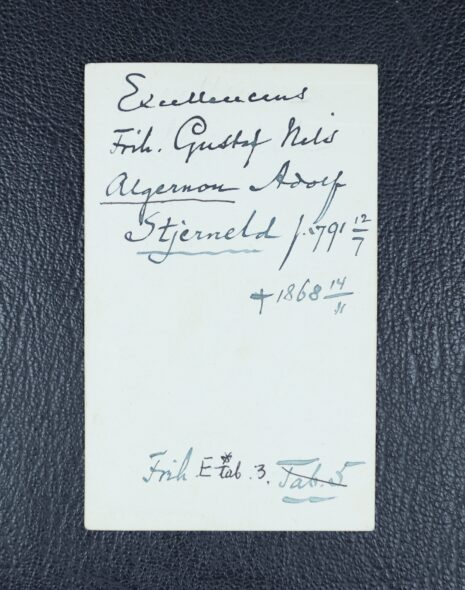 Excellencens
Frih. Gustaf Nils
Algernon Adolf
Stjerneld f. 1791 12/7
+ 1868 14/11
Frih. E tab. 3. Tab. 5